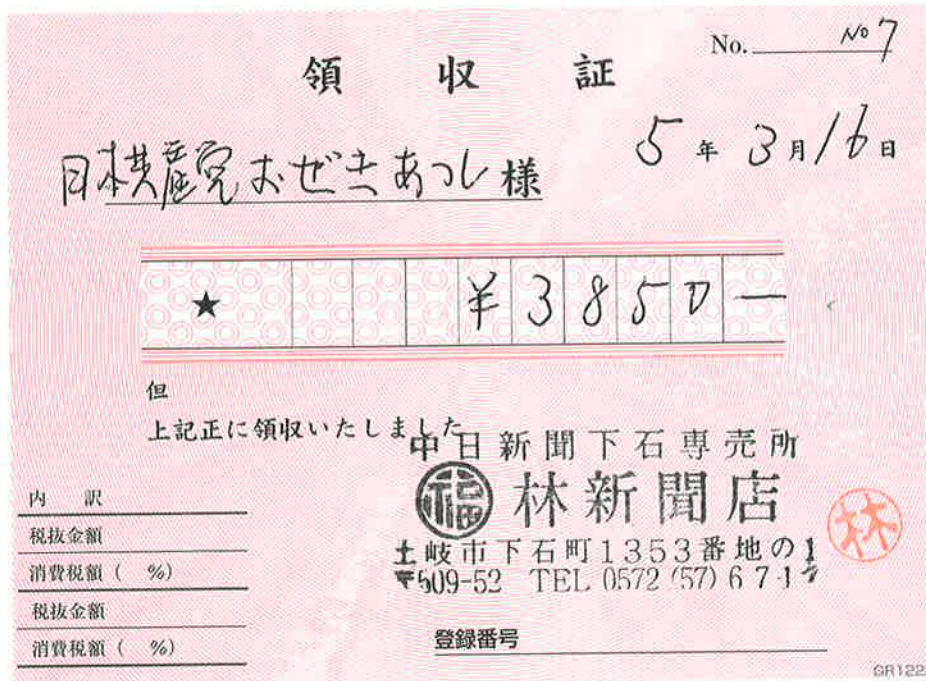 No. No 7
領収証
5年3月16日
日本共産党おぜきあつし様
★ ¥3850―
但
上記正に領収いたしました
中日新聞下石専売所
福 林新聞店
林
土岐市下石町1353番地の1
〒509-52 TEL 0572(57)671
内訳
税抜金額
消費税額( %)
税抜金額
消費税額( %)
登録番号
GR122